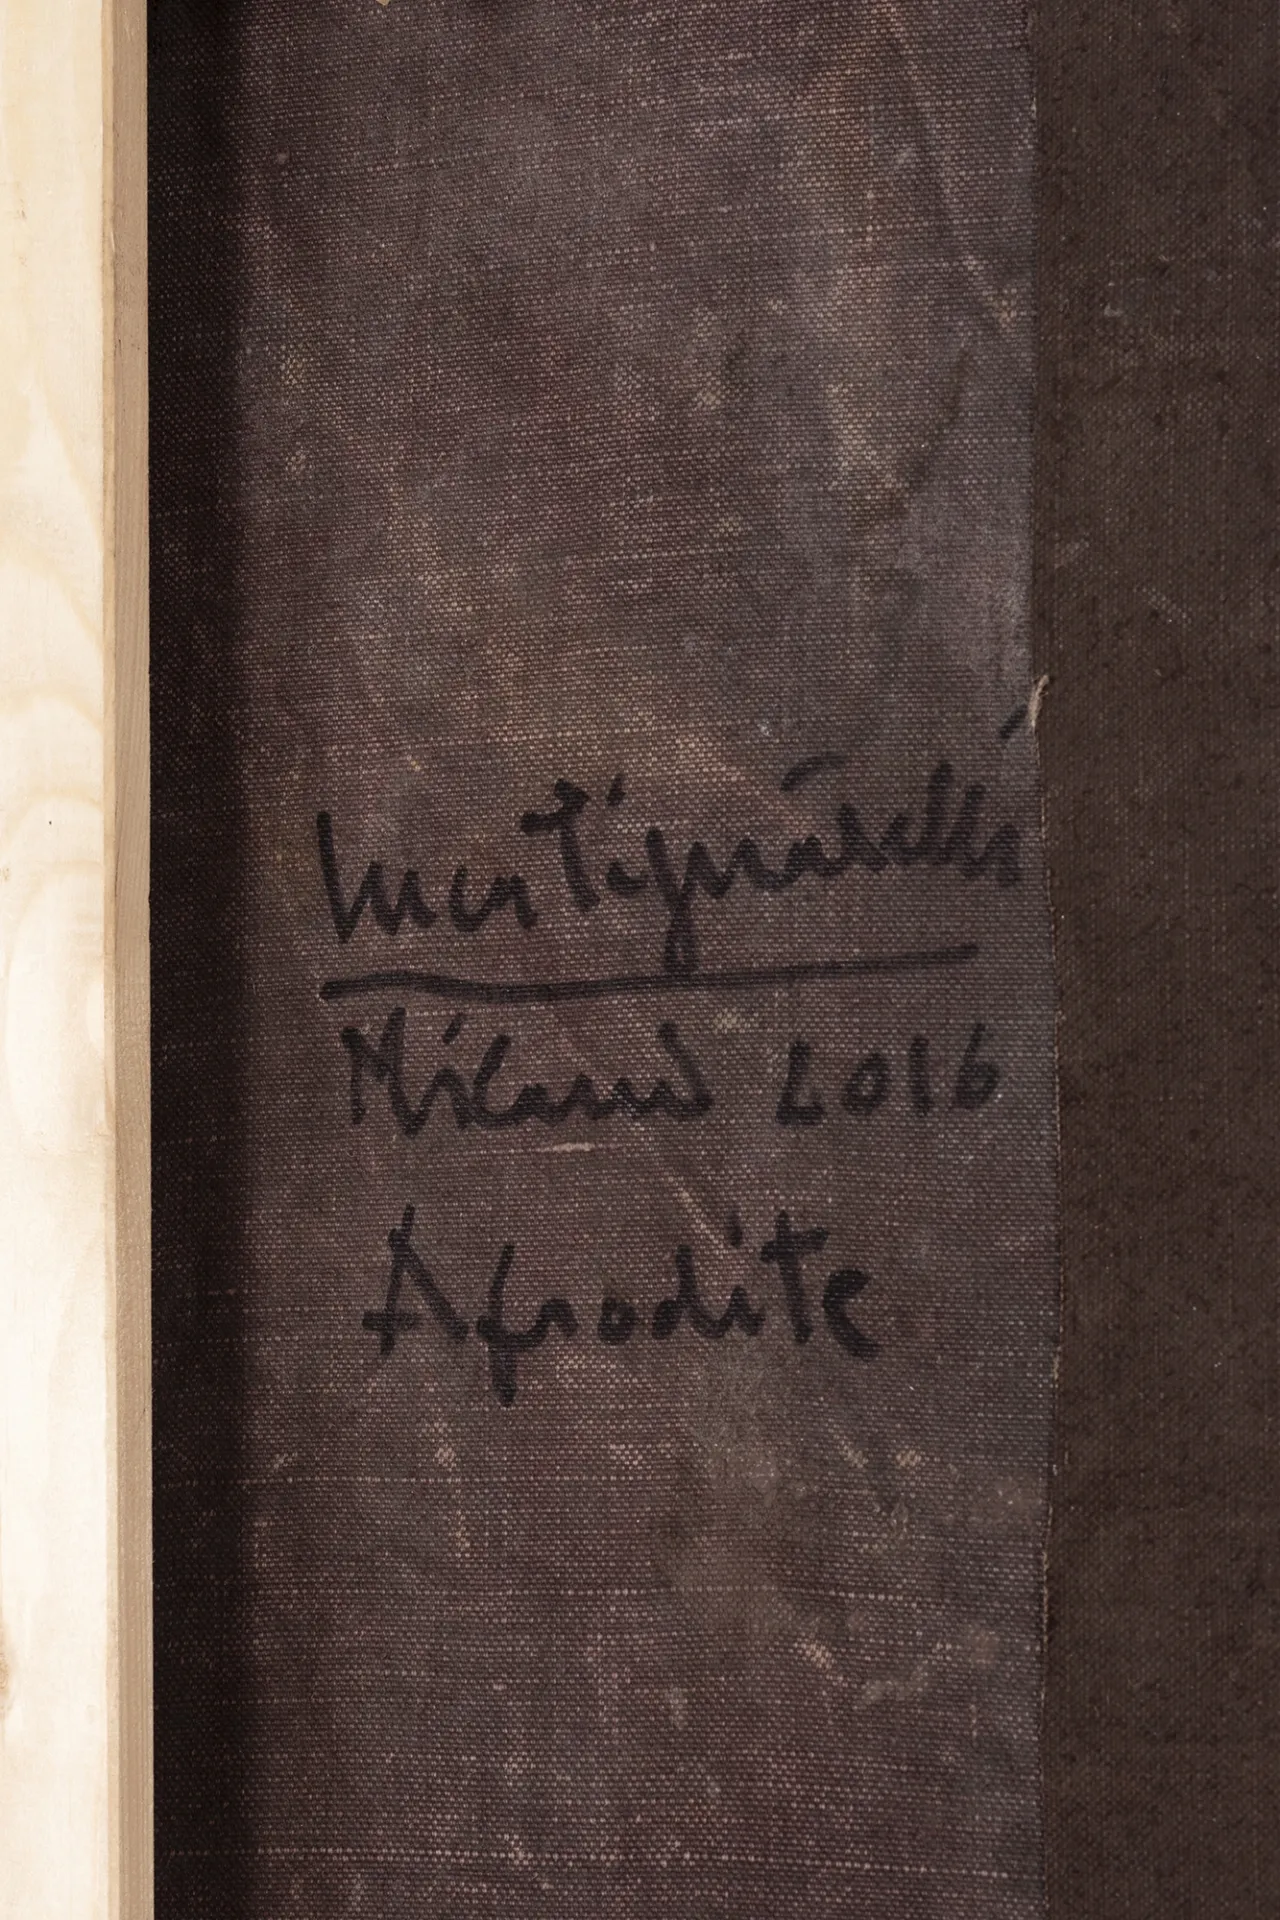 Luca Pignatelli
Milano 2016
Afrodite